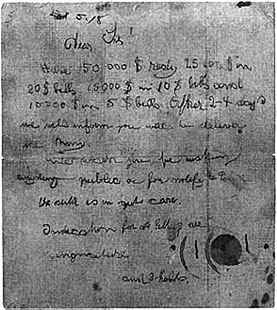 Dear Sir!
Have 50,000 $ redy 25 000 $ in
20 $ bills 15000 $ in 10 $ bills and
10000 $ in 5 $ bills. After 2-4 days
we will inform you were to deliver
the Mony.
We warn you for making
anyding public or for notify the
the child is in gute care.
Indication for all letters are
singnature
and 3 holds.